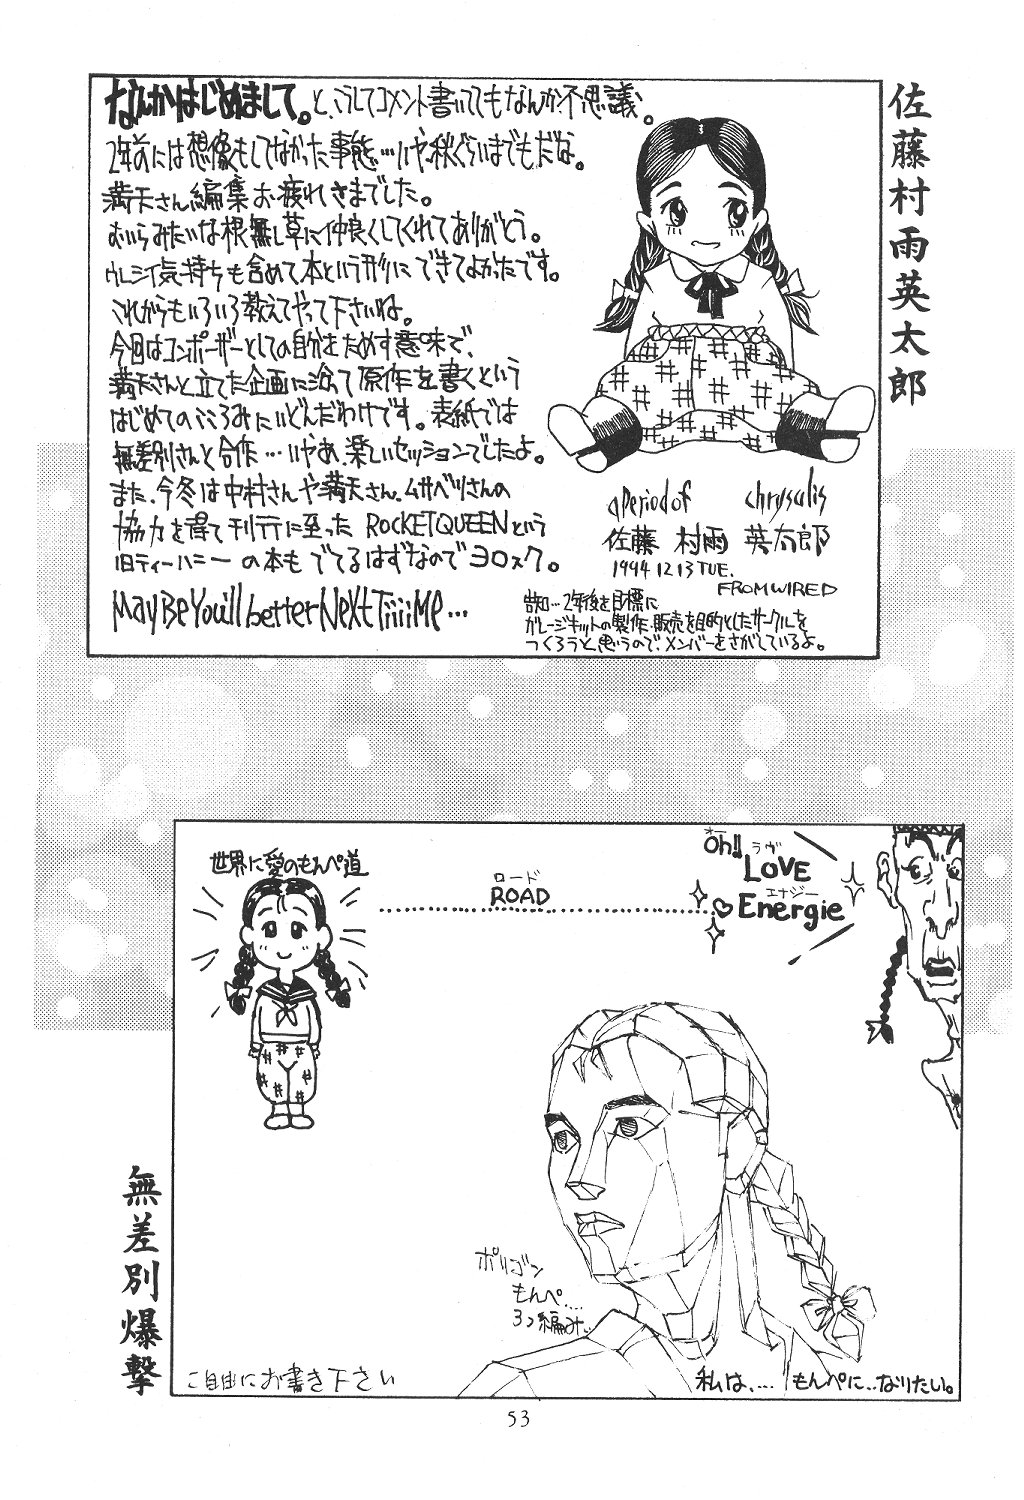 佐藤村雨英太郎
なんかはじめまして。と、こうしてコメント書いてもなんか不思議。
2年前には想像もしてなかった事態…いや、秋ぐらいまでもだな。
満天さん編集お疲れさまでした。
おいらみたいな根無し草に仲良くしてくれてありがとう。
ウレシイ気持ちも含めて本という形にできてよかったです。
これからもいろいろ教えてやって下さいね。
今回はコンポーザーとしての自分をためす意味で、
満天さんと立てた企画に沿って原作を書くという
はじめてのこころみだったりどんだわけです。表紙では
無差別さんと合作…いやあ、楽しいセッションでしたよ。
また、今冬は中村さんや満天さん、ムサベツさんの
協力を得て刊行に至った ROCKETQUEENという
旧ティーハニーの本もでてるはずなのでヨロスク。
MayBe You'll better NeXt Tiiii Me…
aperiod of chrysalis
佐藤 村雨 英太郎
1994 12 13 TUE.
FROM WIRED
告知…2年後を目標に
ガレージキットの製作、販売を目的としたサークルを
つくろうと思うのでメンバーをさがしているよ。
世界に愛のもんぺ道
ロード
ROAD
オー
Oh!!
ラヴ
LOVE
エナジー
Energie
ポリゴン
もんぺ…
3つ編み…
ご自由にお書き下さい
私は、… もんぺに…なりたい。
無差別爆撃
53